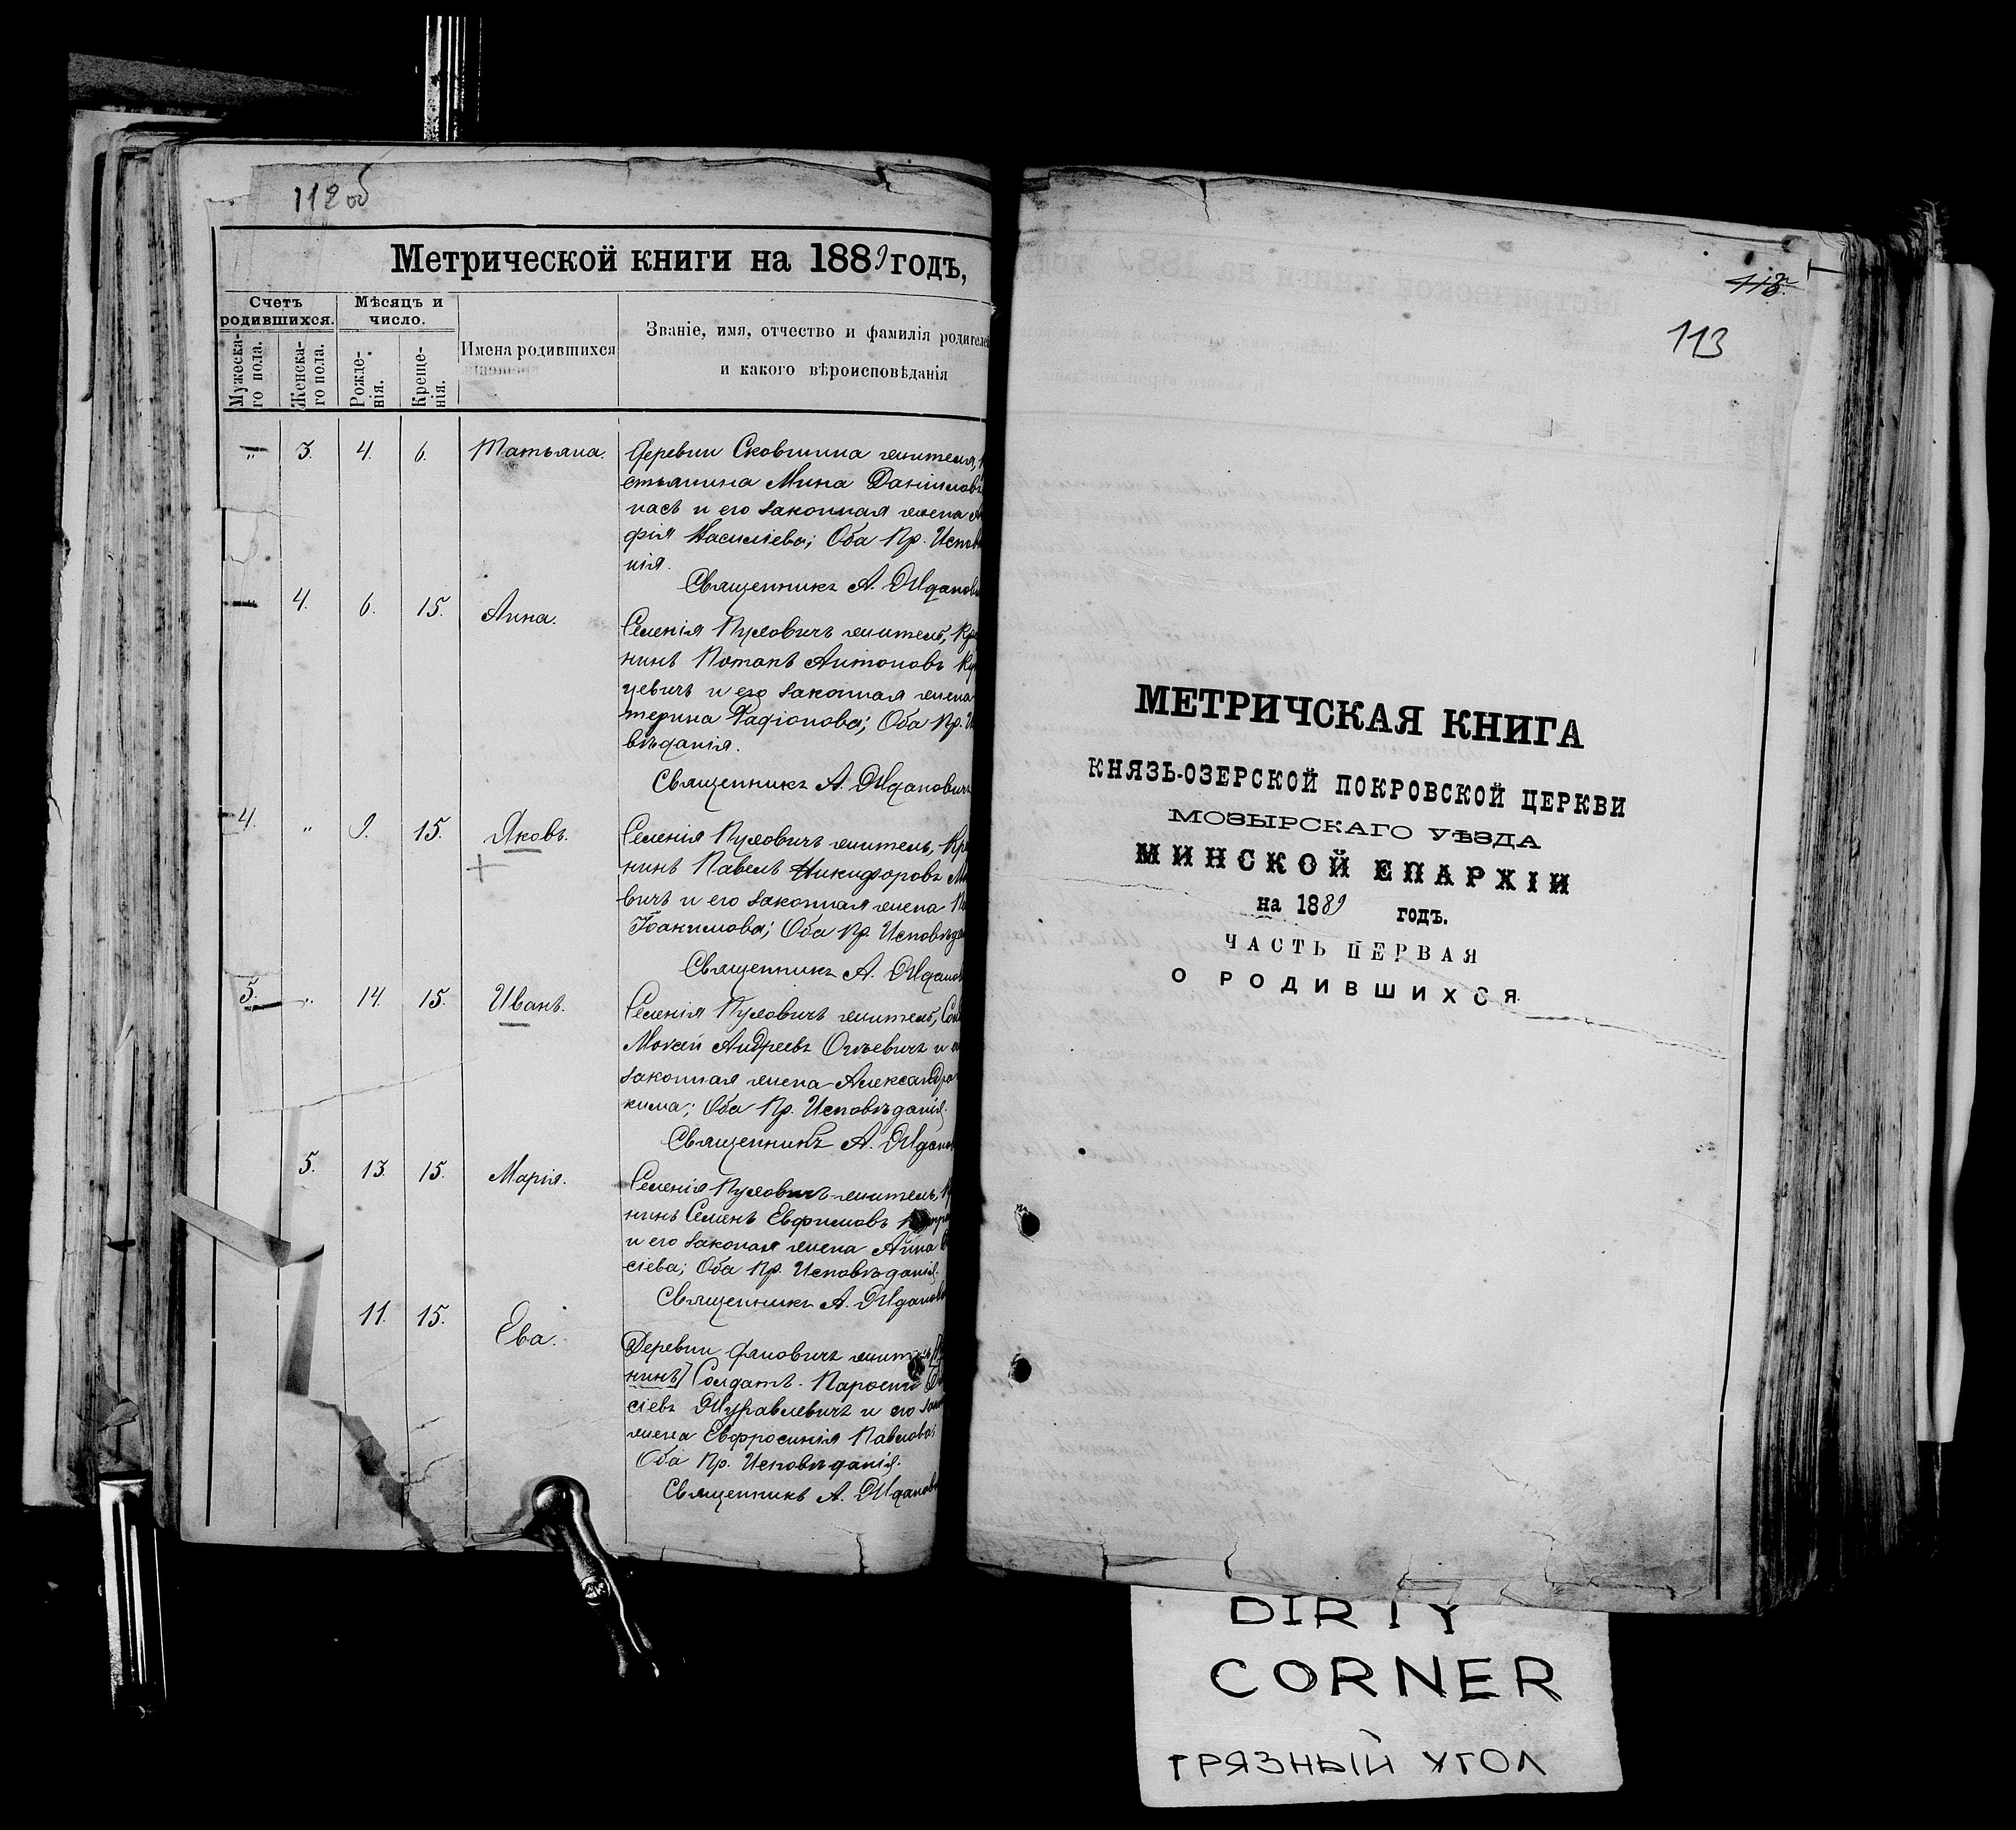 112 об
Метрической книги на 1889 годъ,
Счетъ родившихся.
Мѣсяцъ и число.
Имена родившихся
Званіе, имя, отчество и фамилія родителей
и какого вѣроисповѣданія
Мужеска-
го пола.
Женска-
го пола.
Рожде-
нія.
Креще-
нія.
„ 3. 4. 6. Татьяна. Деревни Сковшина жителя,
стьянина Мина Даніиловъ
и его законная жена
фія Василіева; Оба Пр. Испов
нія.
Священникъ А. Жданов
4. 6. 15. Анна.
Селенія Пуховичъ житель, Кре
нинъ Потапъ Антоновъ
цевичъ и его законная жена
терина Радіонова; Оба Пр. И
вѣданія.
Священникъ А. Ждановичъ
4. „ 9. 15. Яковъ. Селенія Пуховичъ житель, Кре
нинъ Павелъ Никифоровъ
вичъ и его законная жена
Іоакимова; Оба Пр. Исповѣда
Священникъ А. Жданов
5. „ 14. 15. Иванъ. Селенія Пуховичъ житель,
Мокей Андреевъ и
законная жена Александра
кима; Оба Пр. Исповѣданія.
Священникъ А. Жданов
5. 13. 15. Марія. Селенія Пуховичъ житель,
нинъ Семенъ Евфимовъ
и его законая жена Анна
сіева; Оба Пр. Исповѣданія.
Священникъ А. Жданов
11. 15. Ева.
Деревни житель
нинъ] Солдатъ
сіевъ Журавлевичъ и его зак
жена Евфросинія Павлова
Оба Пр. Исповѣданія.
Священникъ А. Жданов
113
МЕТРИЧСКАЯ КНИГА
КНЯЗЬ-ОЗЕРСКОЙ ПОКРОВСКОЙ ЦЕРКВИ
МОЗЫРСКАГО УѢЗДА
МИНСКОЙ ЕПАРХІИ
на 1889 годъ.
ЧАСТЬ ПЕРВАЯ
О РОДИВШИХСЯ.
DIRTY
CORNER
ГРЯЗНЫЙ УГОЛ